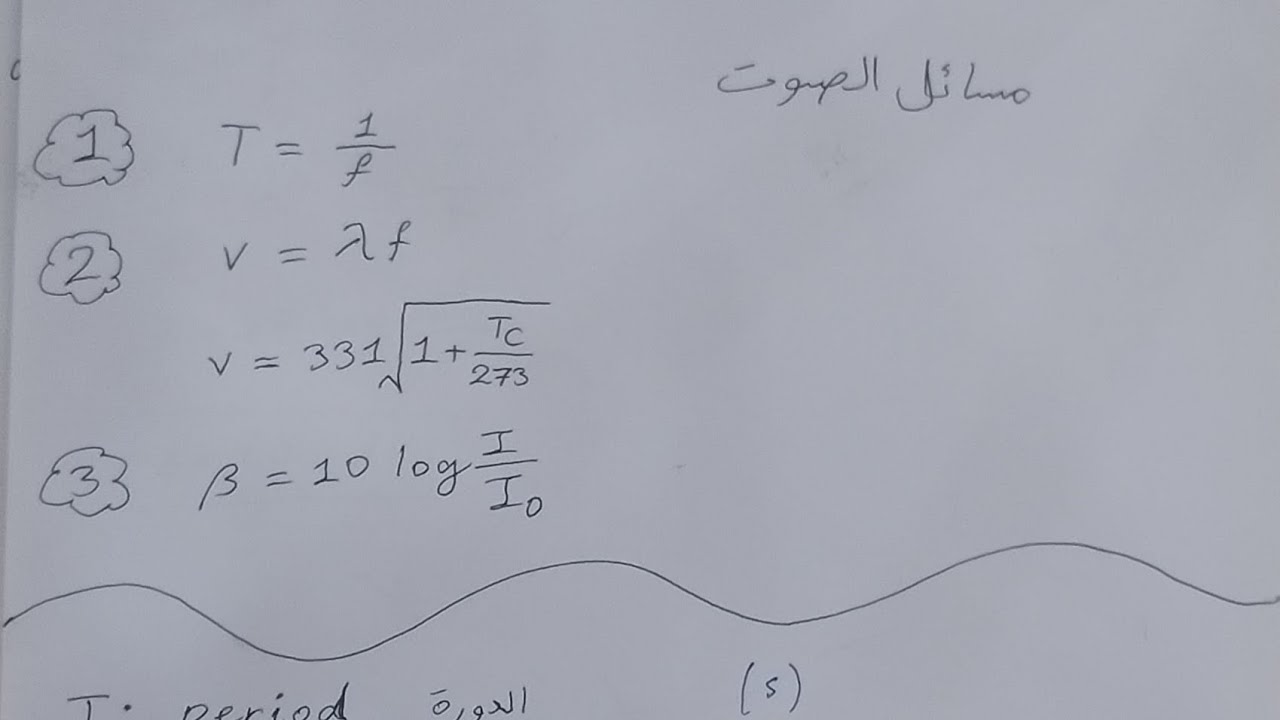 مسائل الصوت
1 T = 1/f
2 v = λf
v = 331√(1 + Tc/273)
3 β = 10 log I/I₀
T: period الدورة (s)